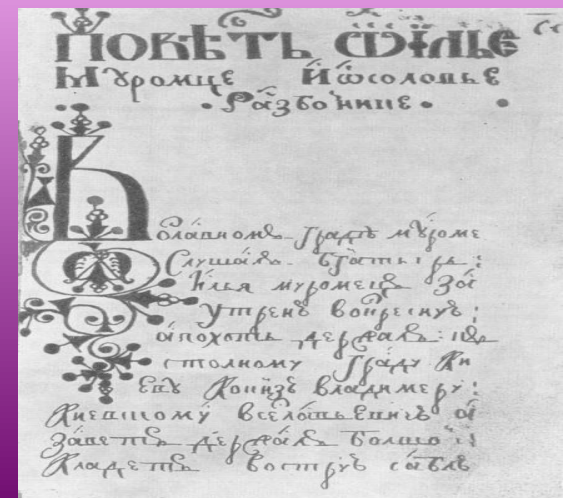 ПОВѢТЬ Ѿ ИЛЬЕ
МУРОМЦЕ И Ѿ СОЛОВЬЕ
РАЗБОИНИКЕ
В
славномъ граде муроме
слушалъ богатырь
Илья муромецъ за
утреню воскресную
а похотъ держалъ
столному граду Ки
еву ко князю владимеру
Киевскому всеславьевичю а
заветъ держалъ болшои
Кладетъ вострую саблю